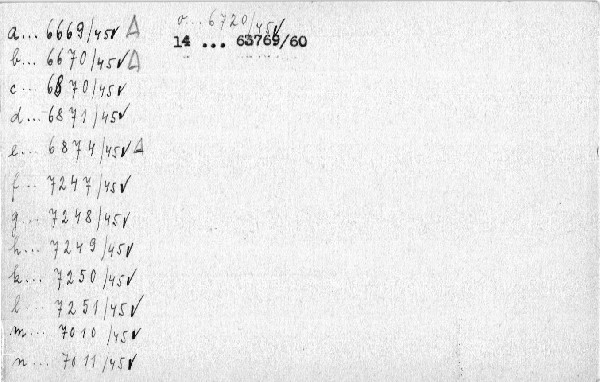 a... 6669/45✓ Δ
b... 6670/45✓ Δ
c... 6870/45✓
d... 6871/45✓
e... 6874/45✓ Δ
f... 7247/45✓
g... 7248/45✓
h... 7249/45✓
k... 7250/45✓
l... 7251/45✓
m... 7010/45✓
n... 7011/45✓
o... 6720/45✓
14 ... 63769/60